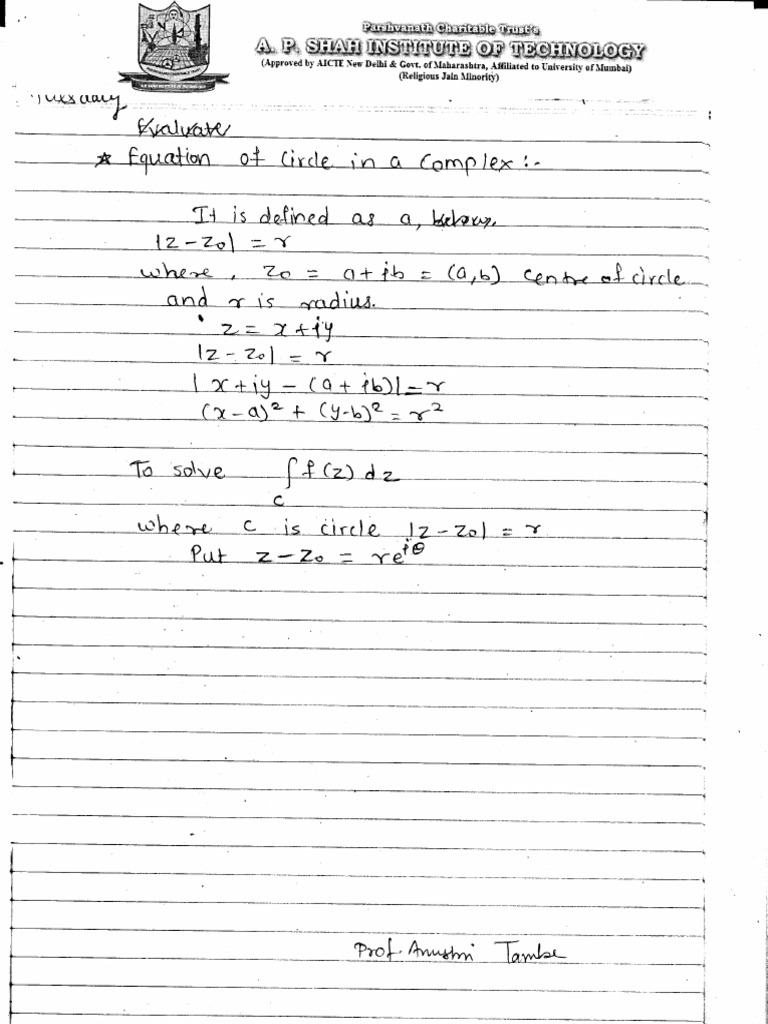 Parshvanath Charitable Trust's
A. P. SHAH INSTITUTE OF TECHNOLOGY
(Approved by AICTE New Delhi & Govt. of Maharashtra, Affiliated to University of Mumbai)
(Religious Jain Minority)
Evaluate
* Equation of Circle in a Complex :-
It is defined as a, below.
|z - z0| = r
where, z0 = a+ib = (a,b) centre of circle
and r is radius.
z = x+iy
|z - z0| = r
| x+iy - (a+ib)| = r
(x-a)² + (y-b)² = r²
To solve ∫ f(z) dz
C
where C is circle |z - z0| = r
Put z - z0 = re^iθ
Prof. Anushri Tambe